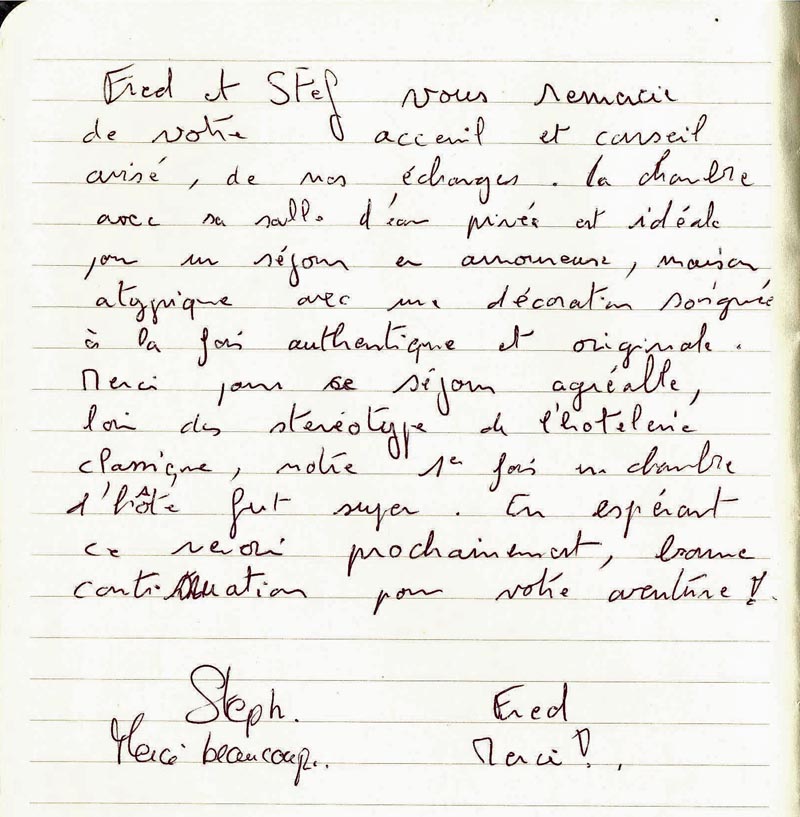 Fred et Stef vous remercie
de votre acceuil et conseil
avisé, de nos échanges. La chambre
avec sa salle d'eau privée est idéale
pour un séjour en amoureux, maison
atypique avec une décoration soignée
à la fois authentique et originale.
Merci pour se séjour agréable,
loin des stéréotype de l'hotelerie
classique, notre 1e fois en chambre
d'hôte fut super. En espérant
ce revoir prochainement, bonne
continuation pour votre aventure !
Steph. Fred
Merci beaucoup. Merci !